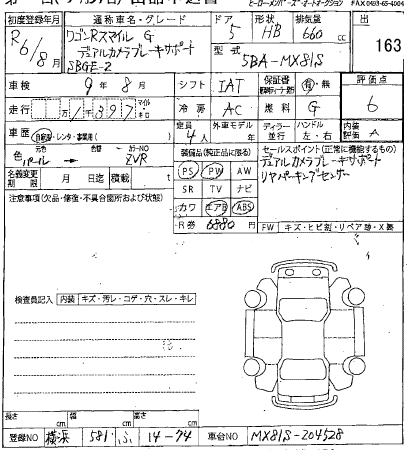 初度登録年月 通称車名・グレード ドア 形状 排気量 出
R6/8月 ワゴンRスマイル G 5 HB 660cc 163
デュアルカメラブレーキサポート
SBGE-2 型式 5BA-MX81S
車検 9年8月 シフト IAT 保証書 有・無 評価点
走行 冷房 AC 燃料 G 6
車歴 自家用・レンタ・事業用( ) 定員 4人 外車モデル 年 ディーラー 並行 ハンドル 左・右 内装評価 A
色 元色 パール 色替 カラーNO ZVR
装備品(純正品に限る) セールスポイント(正常に機能するもの)
デュアルカメラブレーキサポート
リヤパーキングセンサー
名義変更期限 月 日迄 積載 t
PS PW AW
SR TV ナビ
カワ エアB ABS
R券 6880円
注意事項(欠品・修復・不具合箇所および状態)
FW キズ・ヒビ割・リペア跡・X要
検査員記入 内装 キズ・汚レ・コゲ・穴・スレ・キレ
長さ cm 幅 cm 高さ cm
登録NO 横浜 581 ふ 14-74 車台NO MX81S-204528